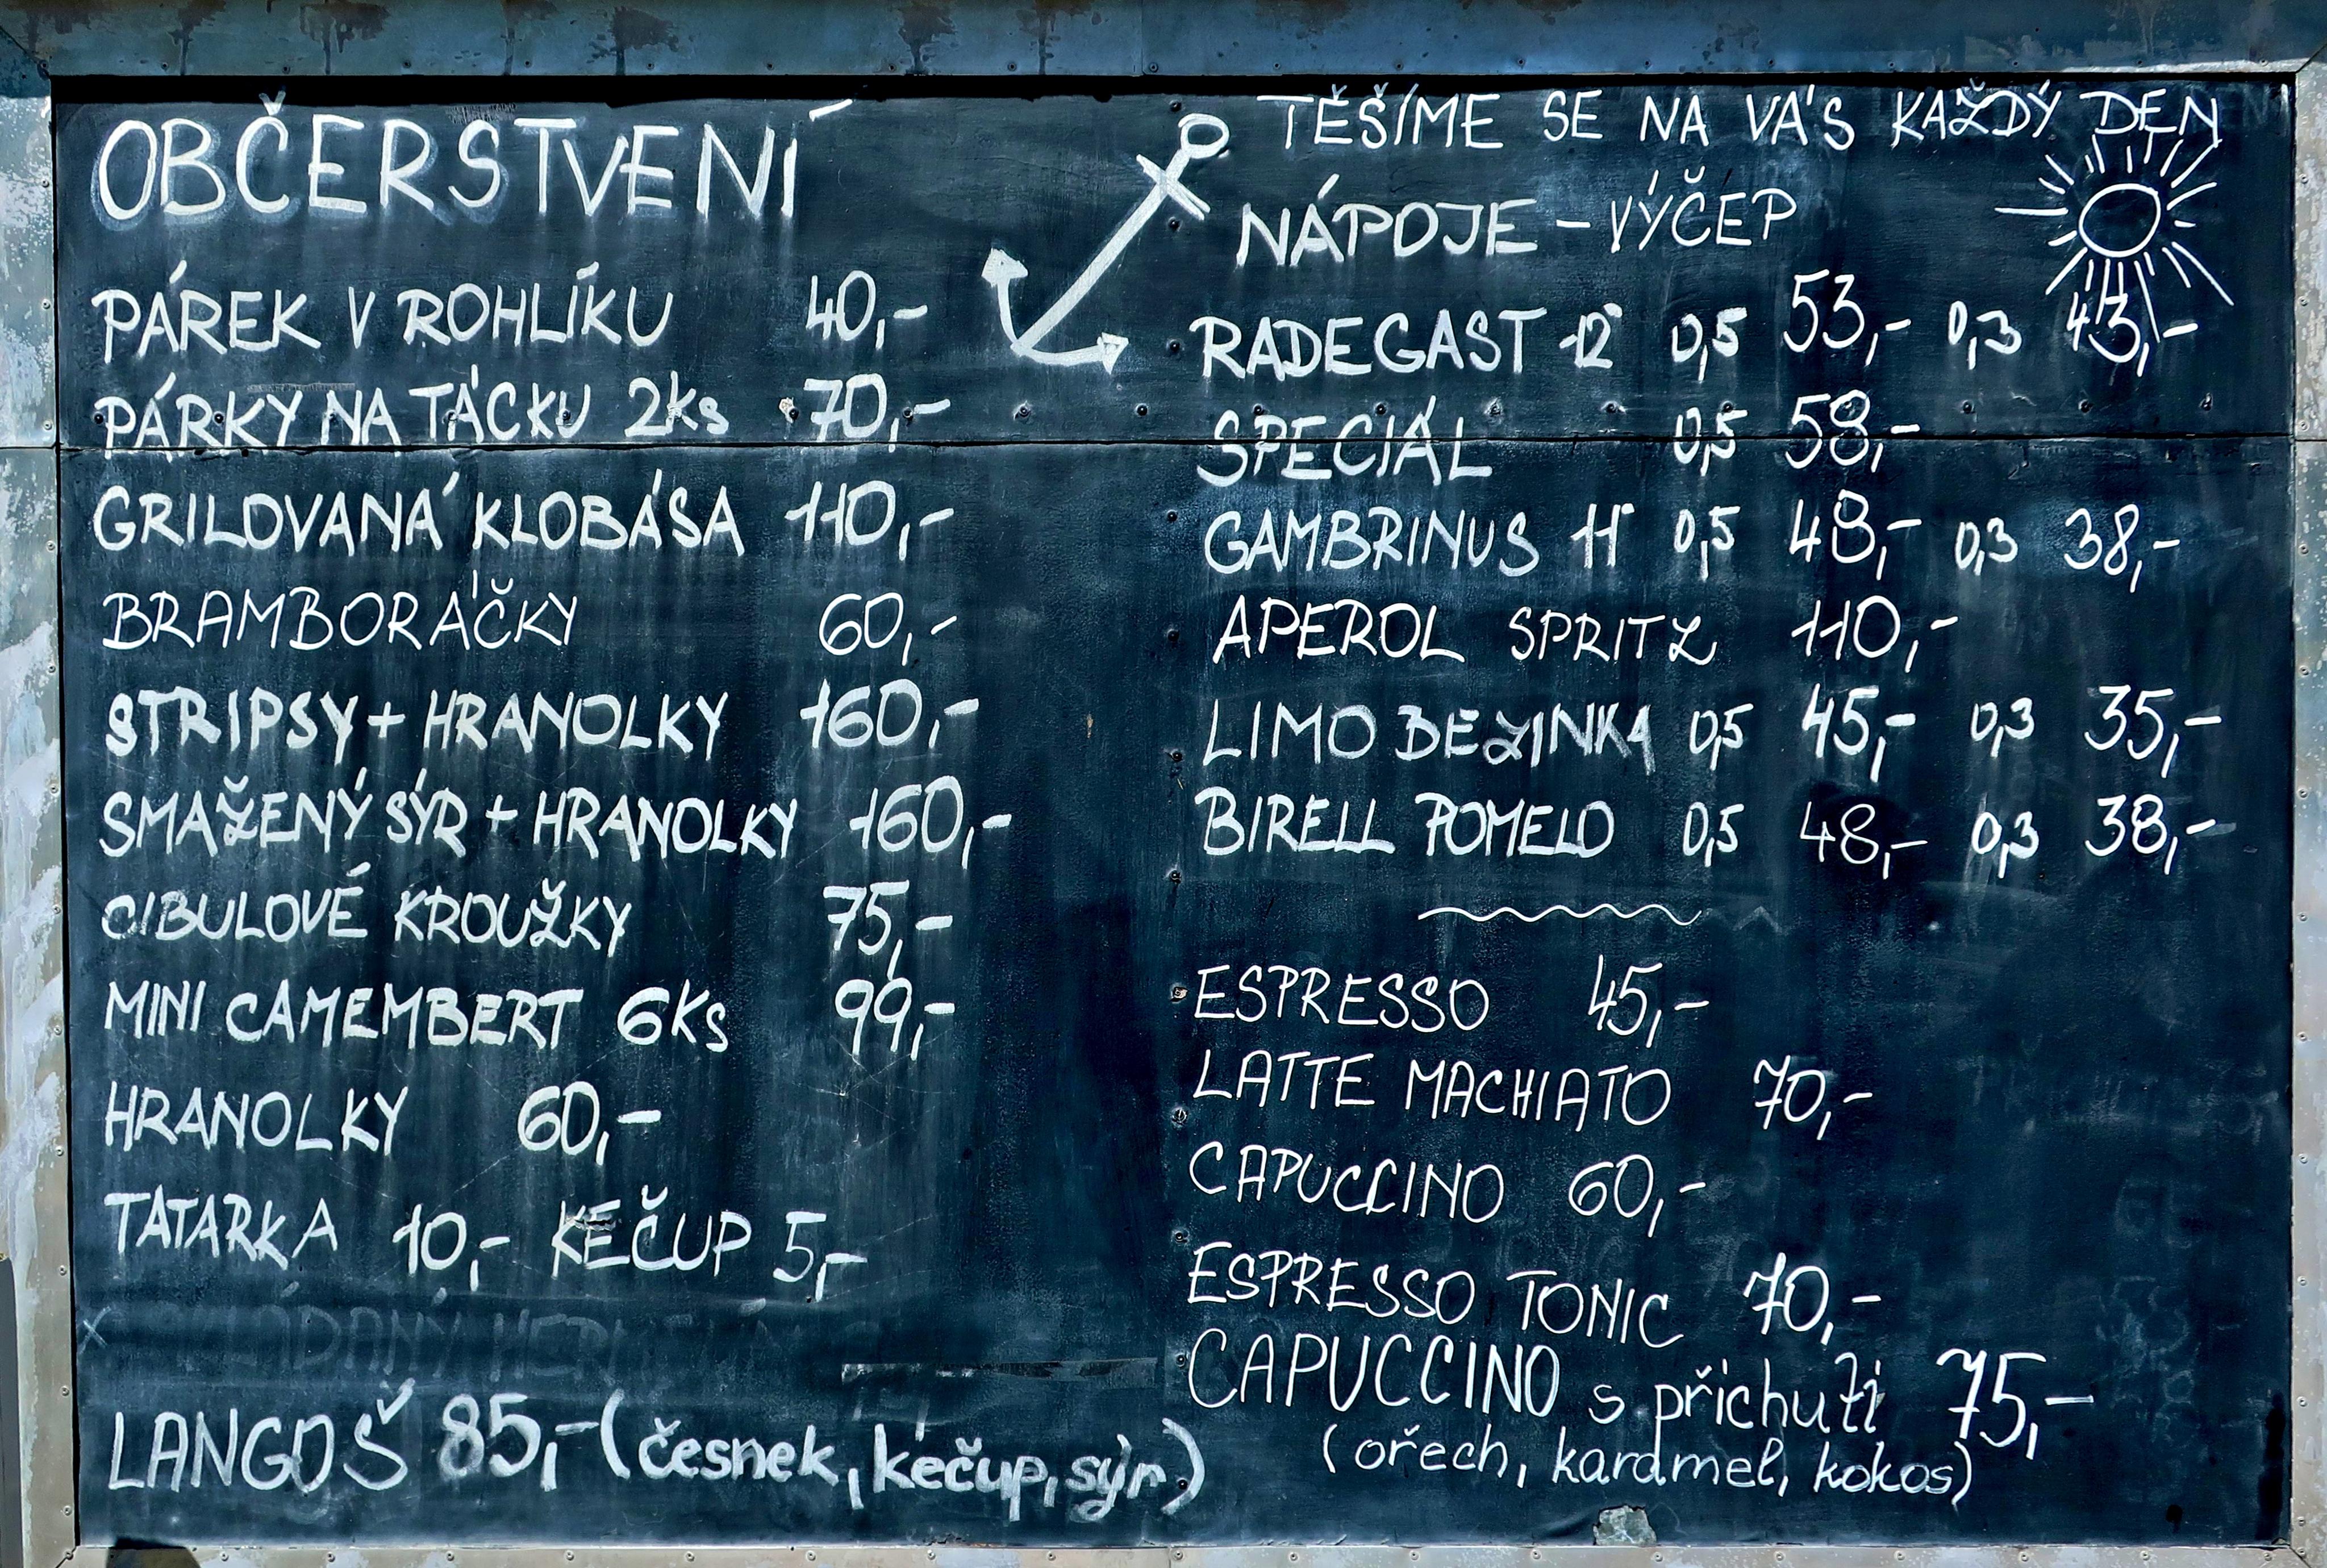 OBČERSTVENÍ
PÁREK V ROHLÍKU 40,-
PÁRKY NA TÁCKU 2ks 70,-
GRILOVANÁ KLOBÁSA 110,-
BRAMBORÁČKY 60,-
STRIPSY + HRANOLKY 160,-
SMAŽENÝ SÝR + HRANOLKY 160,-
CIBULOVÉ KROUŽKY 75,-
MINI CAMEMBERT 6Ks 99,-
HRANOLKY 60,-
TATARKA 10,- KEČUP 5,-
LANGOŠ 85,- (česnek, kečup, sýr)
TĚŠÍME SE NA VÁS KAŽDÝ DEN
NÁPOJE - VÝČEP
RADEGAST 12° 0,5 53,- 0,3 43,-
SPECIÁL 0,5 58,-
GAMBRINUS 11° 0,5 48,- 0,3 38,-
APEROL SPRITZ 110,-
LIMO BEZINKA 0,5 45,- 0,3 35,-
BIRELL POMELO 0,5 48,- 0,3 38,-
ESPRESSO 45,-
LATTE MACHIATO 70,-
CAPUCCINO 60,-
ESPRESSO TONIC 70,-
CAPUCCINO s příchutí 75,-
(ořech, karamel, kokos)